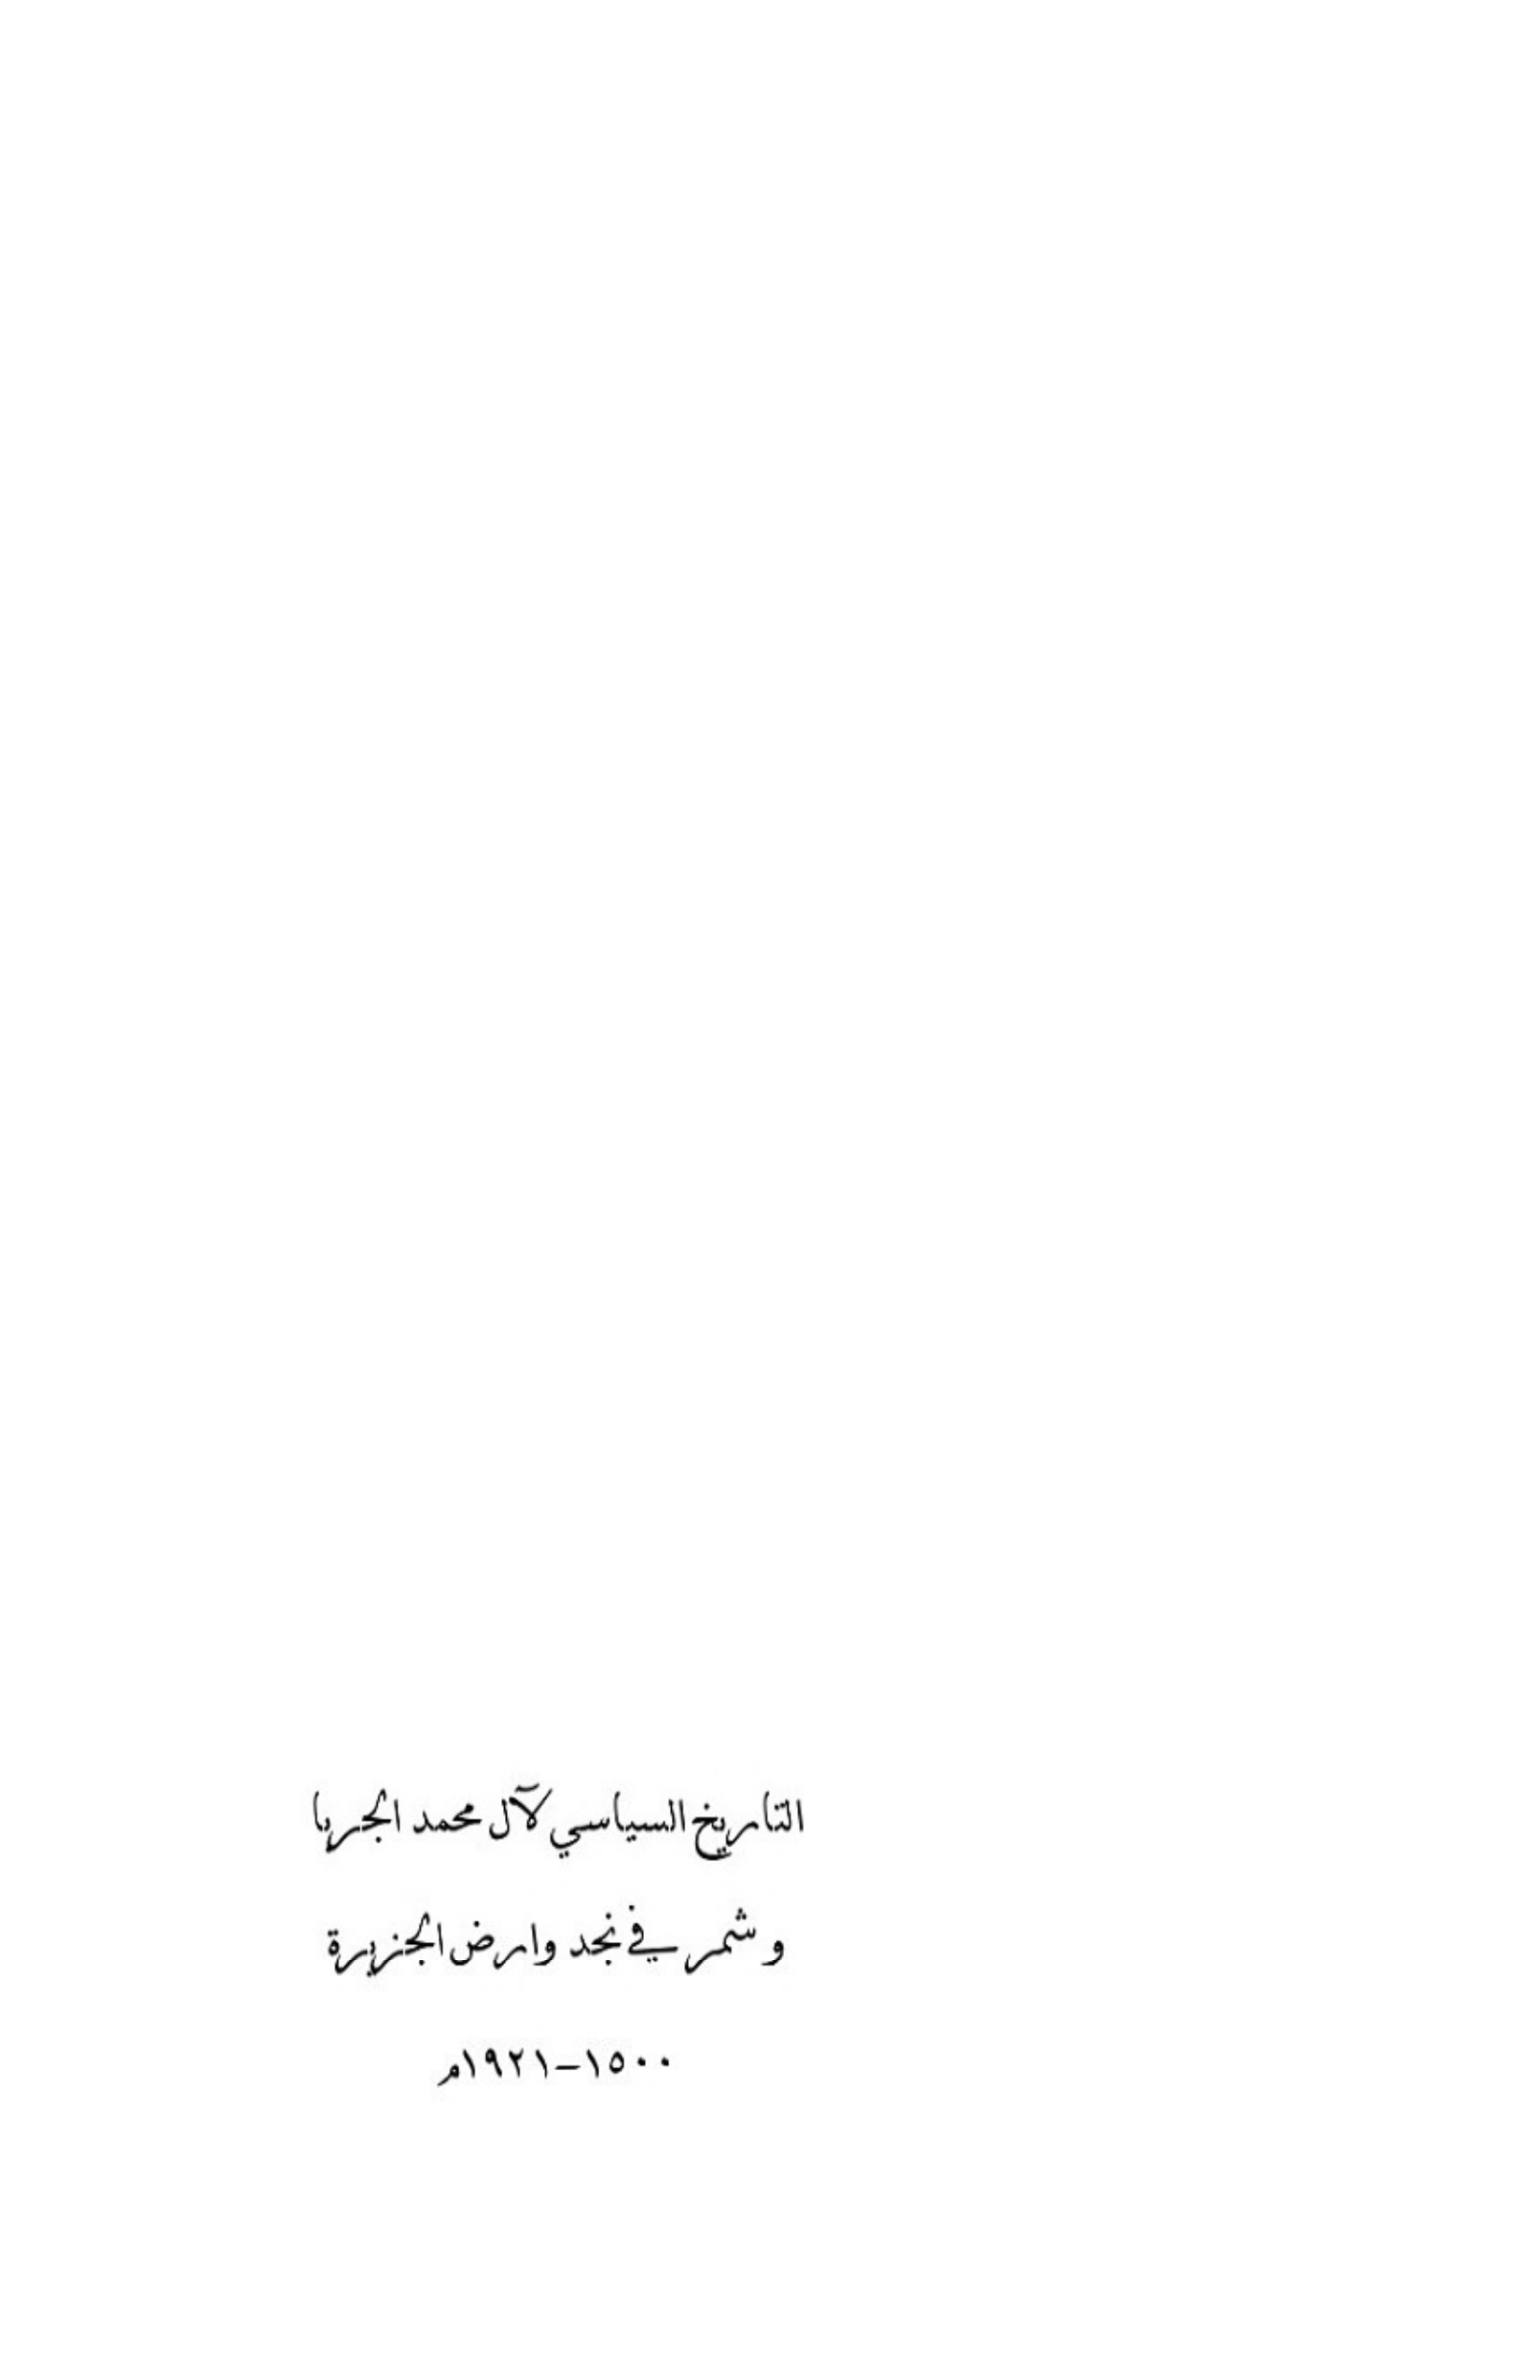 التاريخ السياسي لآل محمد الجربا
وشمر في نجد وارض الجزيرة
١٥٠٠-١٩٢١م